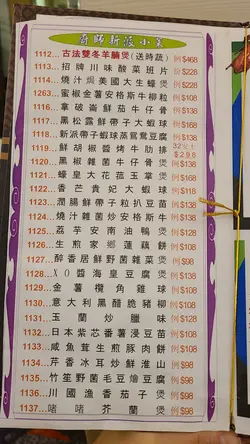 首師新派小菜
1112...古法雙冬羊腩煲(送時蔬) 例$468
1113...招牌川味酸菜班片 份$228
1114...燒汁焗美國大生蠔 例$168
1263...蜜椒金薯安格斯牛柳粒 例$108
1116...拿破崙鮮茄牛仔骨 例$138
1117...黑松露鮮帶子大蝦球 例$168
1118...新派帶子蝦球蒸鴛鴦豆腐 例$138
1119...鮮胡椒醬烤牛肋排
1120...黑椒雜菌牛仔骨 例$138
1121...蠔皇大花菰玉掌 例$168
1122...香芒貴妃大蝦球 例$118
1123...潤腸鮮帶子粒扒豆苗 例$138
1124...燒汁雜菌炒安格斯牛 例$138
1125...荔芋安南油鴨煲 例$128
1126...生煎家鄉蓮藕餅 例$108
1127...醉香居鮮野菌雜菜煲 例$98
1128...XO醬海皇豆腐煲 例$138
1129...金薯欖角雞球 例$108
1130...意大利黑醋脆豬柳 例$108
1131...玉蘭炒臘味 例$108
1132...日本紫芯番薯浸豆苗 例$108
1133...咸魚茸生煎豚肉餅 例$108
1134...芹香冰耳炒鮮淮山 例$98
1135...竹笙野菌毛豆燴豆腐 例$98
1136...川國漁香茄子煲 例$98
1137...啫啫芥蘭煲 例$98